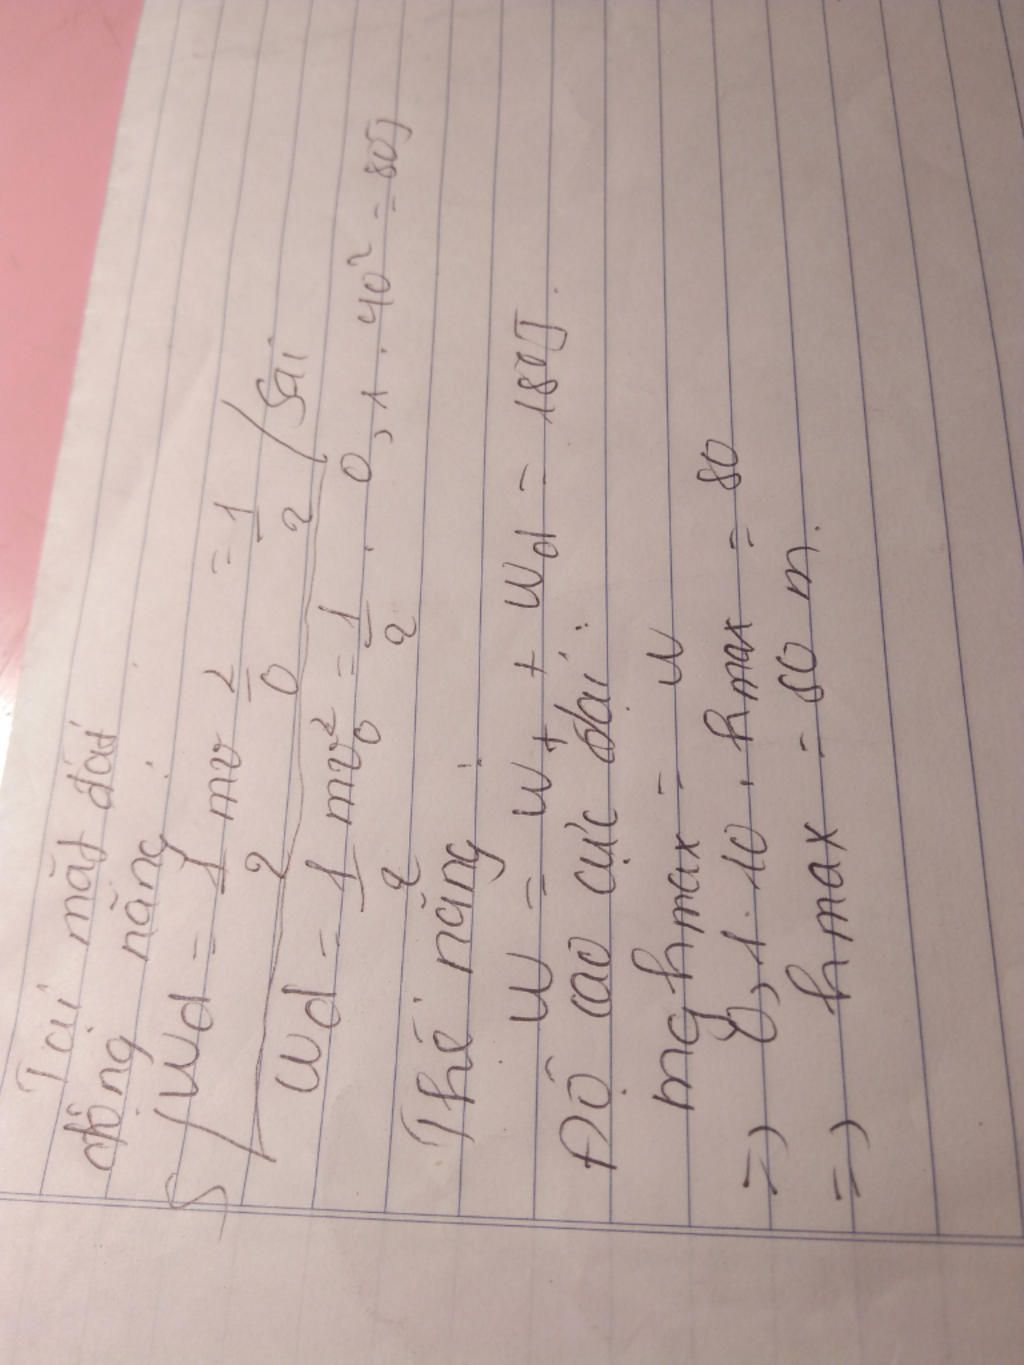 Tại mặt đất
động năng :
Wd = 1/2 mv 2/0 = 1/2 / Sai
Wd = 1/2 mv₀² = 1/2 . 0,1 . 40² = 80J
Thế năng :
W = Wt + Wd = 180J .
Độ cao cực đại :
mghmax = W
=> 0,1 . 10 . hmax = 80
=> hmax = 80 m .